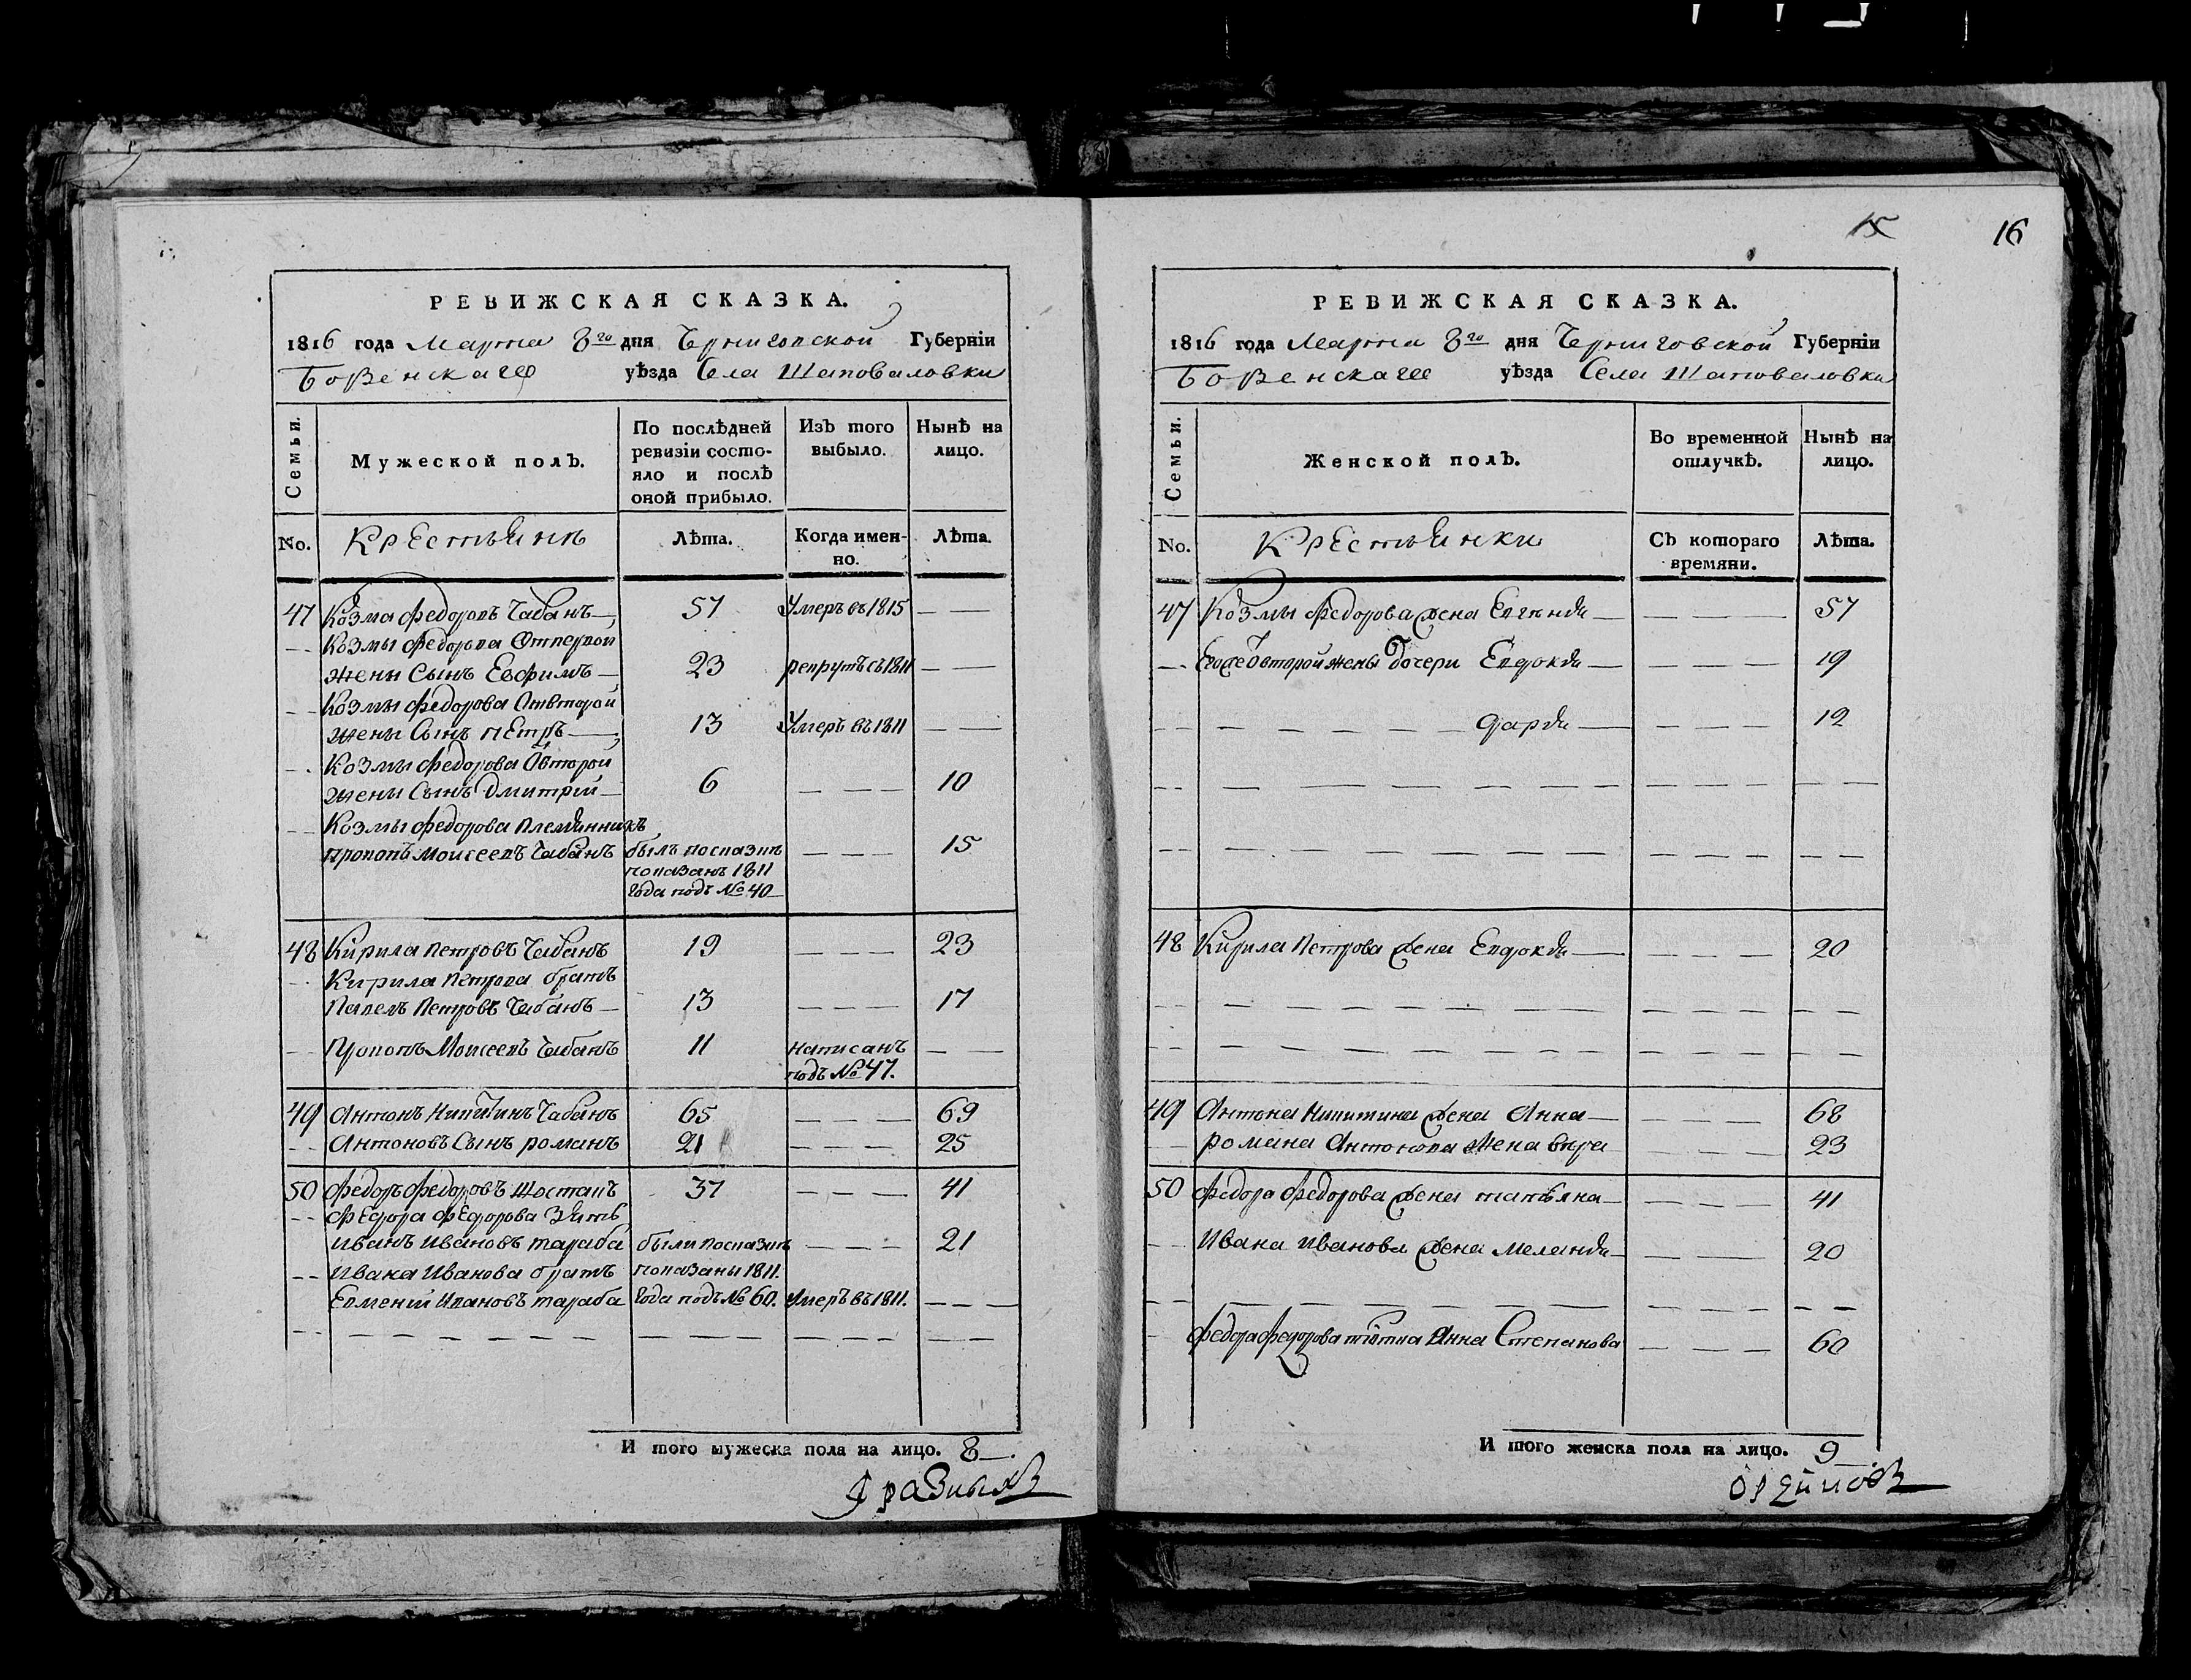 РЕВИЖСКАЯ СКАЗКА.
1816 года Марта 8го дня Черниговской Губерніи
Борзенскаго уѣзда Села Шаповаловки
Семьи.
Мужеской полъ.
По послѣдней ревизіи состояло и послѣ оной прибыло.
Изъ того выбыло.
Нынѣ на лицо.
No.
Крестьянъ
Лѣта.
Когда именно.
Лѣта.
47 Козма Федоровъ Чабанъ 57 Умеръ въ 1815 — —
Козмы Федорова Отпервой
жены Сынъ Евфимъ 23 рекрутъ съ 1811 — —
Козмы Федорова Отвторой
жены Сынъ Петръ 13 Умеръ въ 1811 — —
Козмы Федорова Овторой
жены Сынъ Дмитрій 6 — — — 10
Козмы Федорова племянникъ
Прокопъ Моисеевъ Чабанъ былъ посказкѣ — — — 15
показанъ 1811
Года подъ № 40
48 Кирила Петровъ Чабанъ 19 — — — 23
Кирила Петрова братъ
Павелъ Петровъ Чабанъ 13 — — — 17
Прокопъ Моисеевъ Чабанъ 11 написанъ — —
подъ № 47.
49 Антонъ Никитинъ Чабанъ 65 — — — 69
Антоновъ Сынъ романъ 21 — — — 25
50 Федоръ Федоровъ Шостакъ 37 — — — 41
Федора Федорова Зять
Иванъ Ивановъ тараба были посказкѣ — — — 21
Ивана Иванова братъ показаны 1811.
Евменій Ивановъ тараба Года подъ № 60. умеръ въ 1811. — — —
И того мужеска пола на лицо. 8
15
16
РЕВИЖСКАЯ СКАЗКА.
1816 года Марта 8го дня Черниговской Губерніи
Борзенскаго уѣзда Села Шаповаловки
Семьи.
Женской полъ.
Во временной отлучкѣ.
Нынѣ на лицо.
No.
Крестьянки
Съ котораго времяни.
Лѣта.
47 Козмы Федорова жена — — — 57
Егоже Овторой жены Дочери Евдокія — — — 19
Дарія — — — 12
48 Кирила Петрова жена Евдокія — — — 20
49 Антона Никитина жена Анна — — — 68
романа Антонова жена вѣра — — — 23
50 Федора Федорова жена татьяна — — — 41
Ивана Иванова жена Меланія — — — 20
Федора Федорова тіотка Анна Степанова — — — 60
И того женска пола на лицо. 9